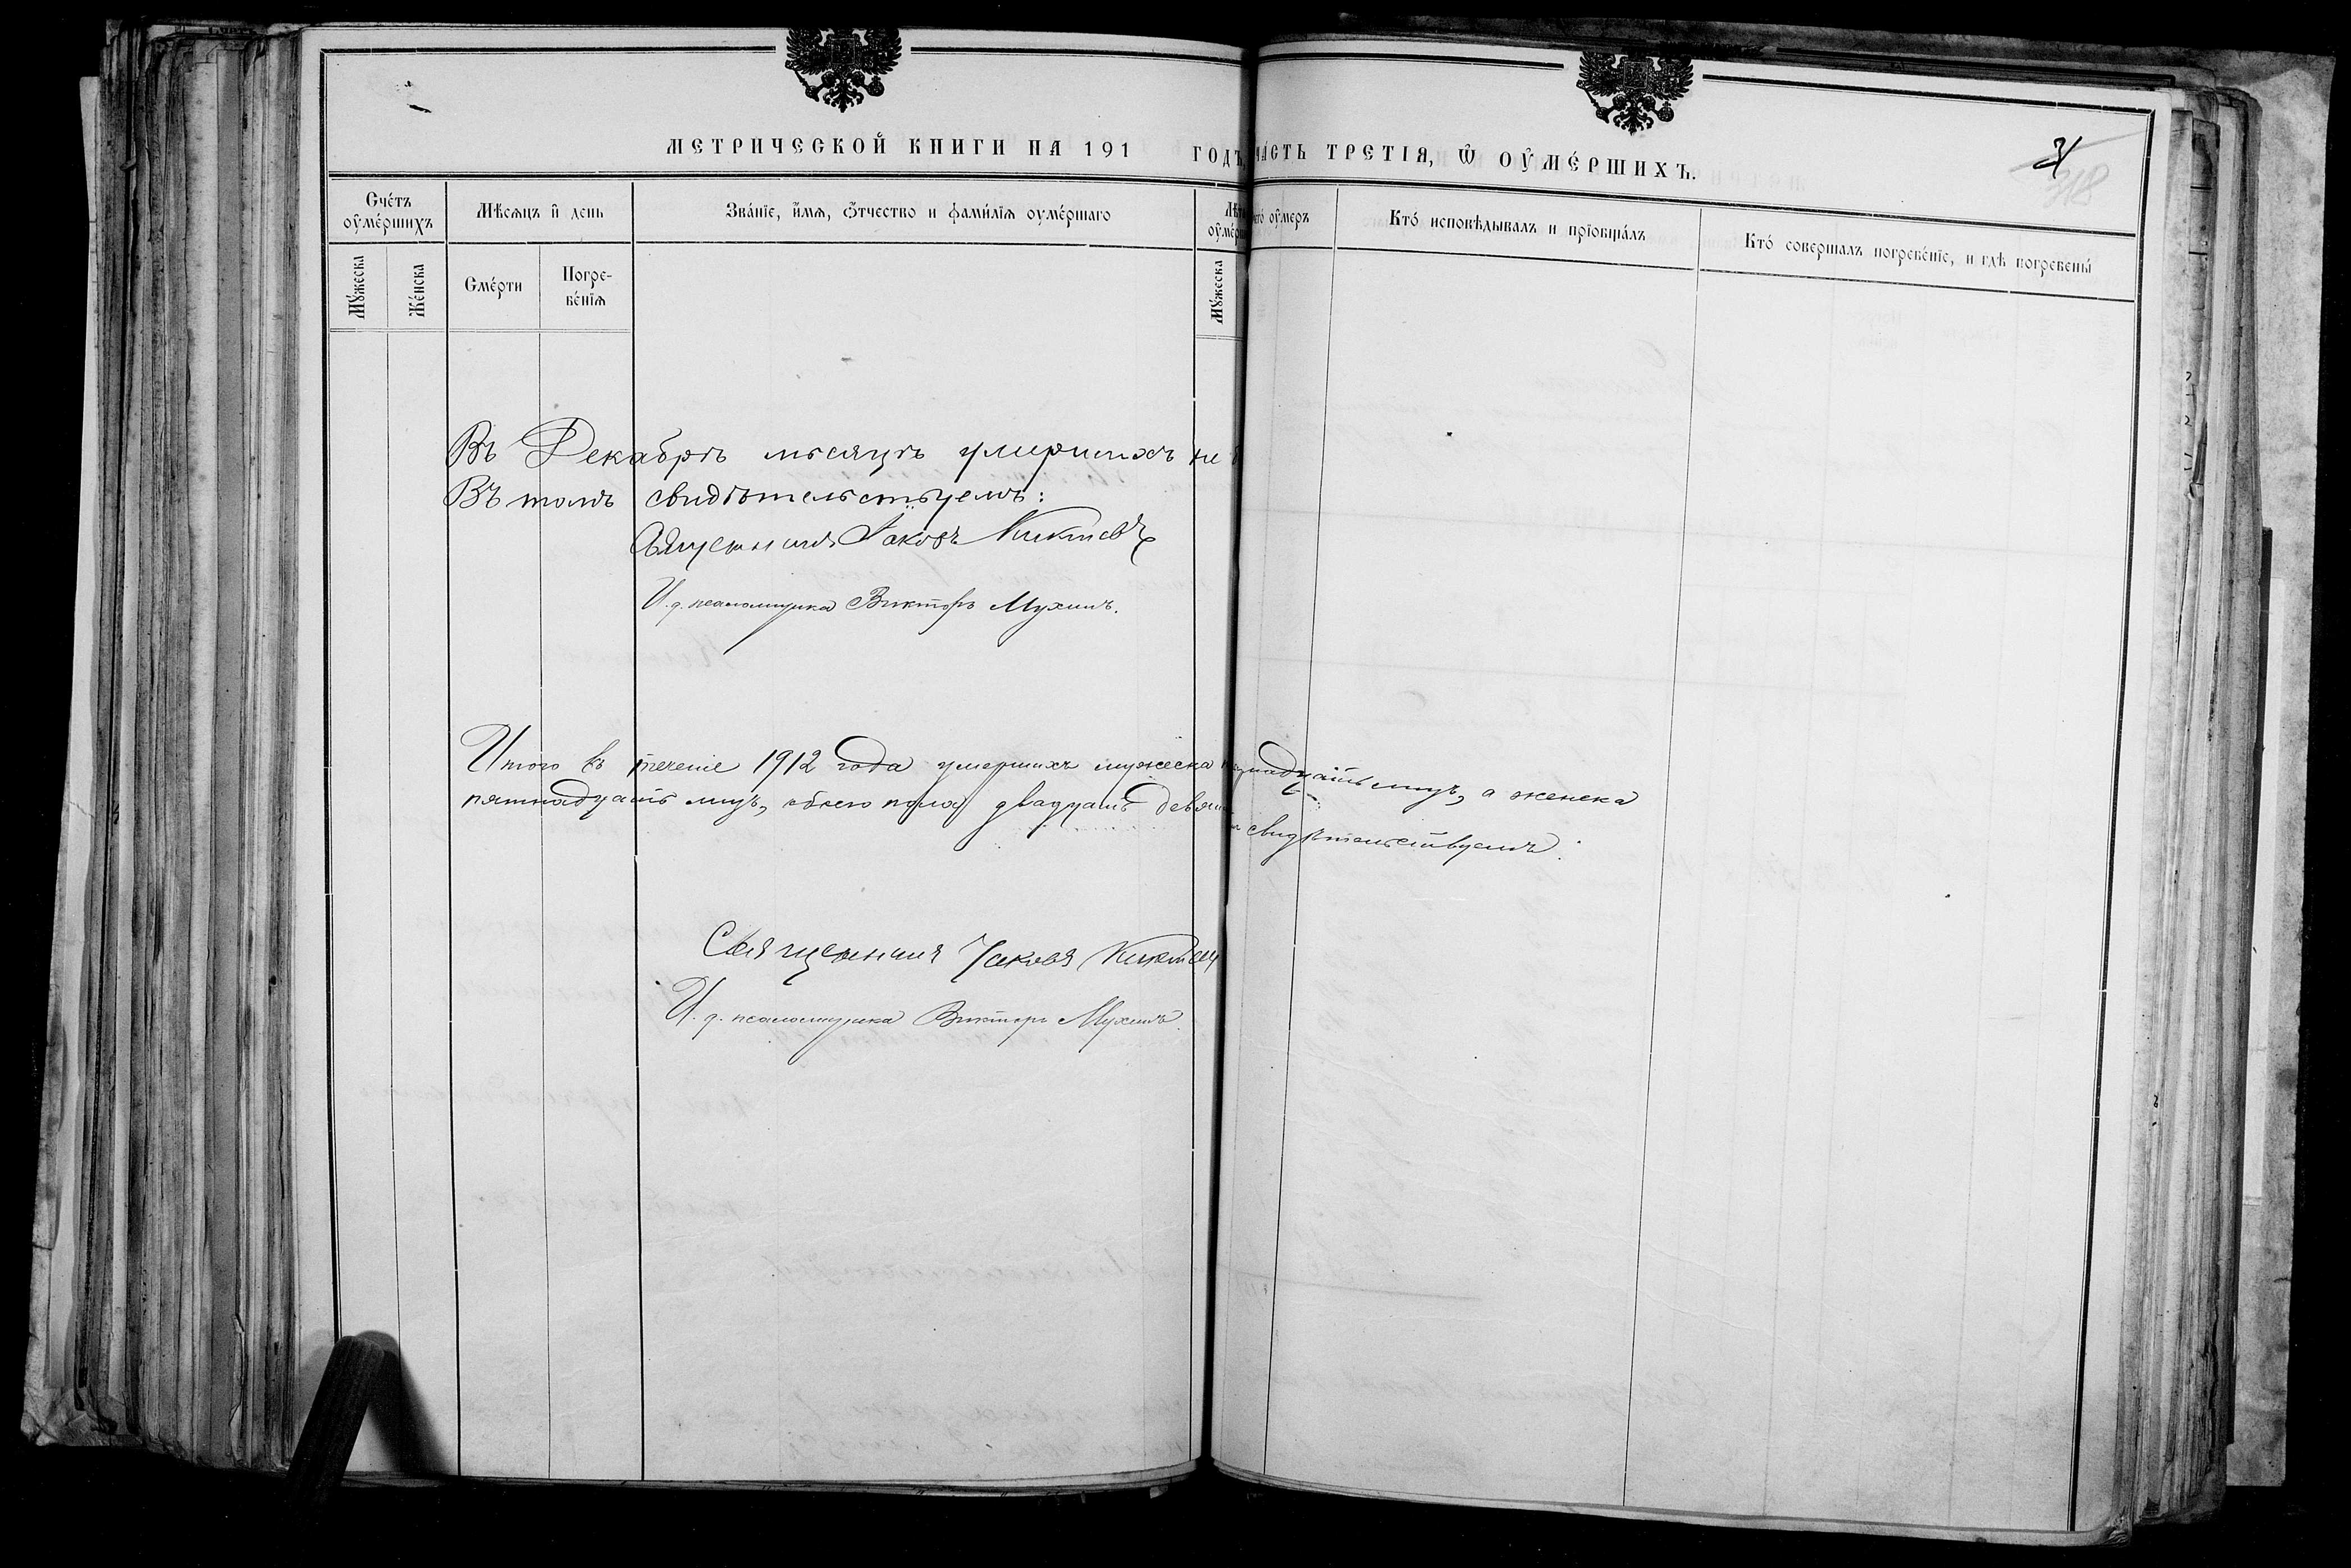 МЕТРИЧЕСКОЙ КНИГИ НА 191 ГОДЪ, ЧАСТЬ ТРЕТІЯ, Ѿ ОУМЕ́РШИХЪ.
318
Сче́тъ оумершихъ
Мѣсяцъ и день
Зва́ніе, и҆мѧ, ѻ҆́тчество и фами́лїѧ оуме́ршаго
Лѣт
оуме́р
оумеръ
Кто́ исповѣдывалъ и прїобща́лъ
Кто́ совершалъ погребе́нїе, и гдѣ погребены́
Мꙋ́жеска
Же́нска
Сме́рти
Погребе́нїѧ
Мꙋ́жеска
Въ Декабрѣ мѣсяцѣ умершихъ не
Въ томъ свидѣтельствуемъ:
Священникъ Іаковъ Никтевъ
И. д. псаломщика Викторъ Мухинъ.
Итого въ теченіе 1912 года умершихъ мужеска надцать душъ, а женска
пятнадцать душъ, обоего пола двадцать девять свидѣтельствуемъ:
Священникъ Іаковъ
И. д. псаломщика Викторъ Мухинъ.